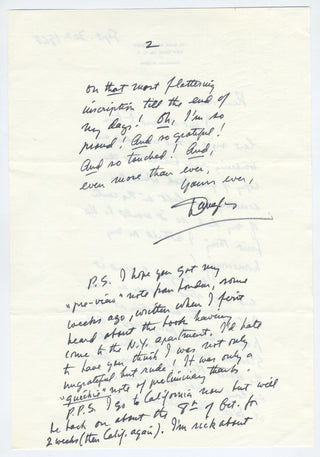 2
on that most flattering
inscription till the end of
my days! Oh, I'm so
proud! And so grateful!
And so touched! And,
even more than ever,
Yours ever,
P.S. I hope you got my
"pre-vious" note from London, some
weeks ago, written when I first
heard about the book having
come to the N.Y. apartment. I'd hate
to have you think I was not only
ungrateful but rude! It was only a
"quickie" note of preliminary thanks.
P.P.S. I go to California now but will
be back on about the 8th of Oct. for
2 weeks (then Calif. again). I'm sick about